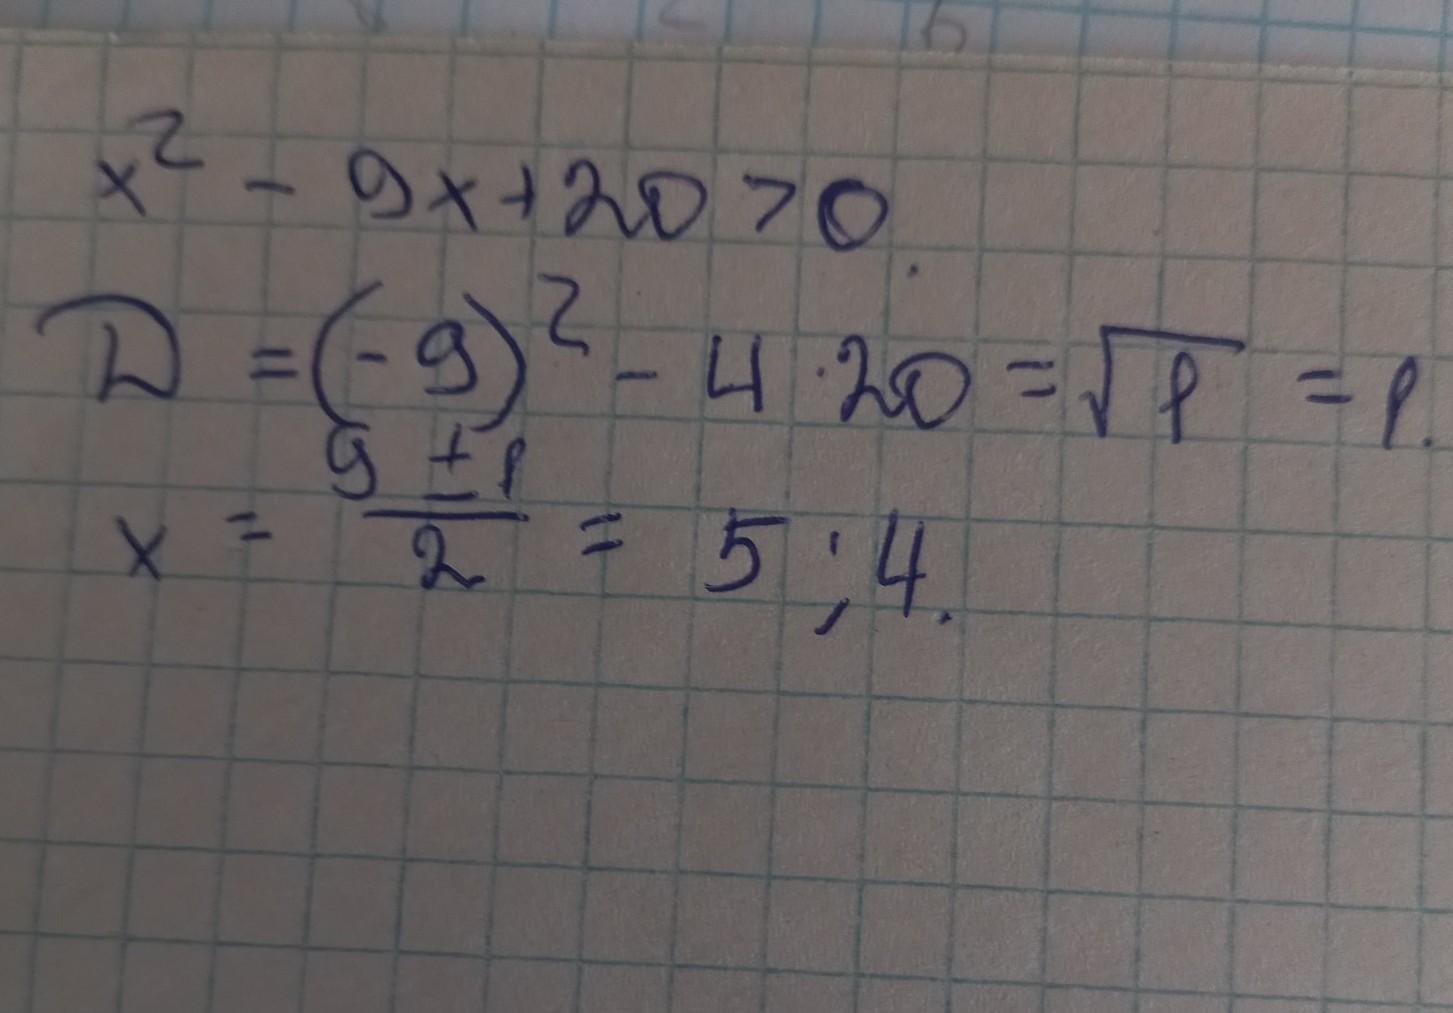 x² - 9x+20>0.
D = (-9)² - 4·20 = √1 = 1.
x = (9 ± 1)/2 = 5 ; 4.